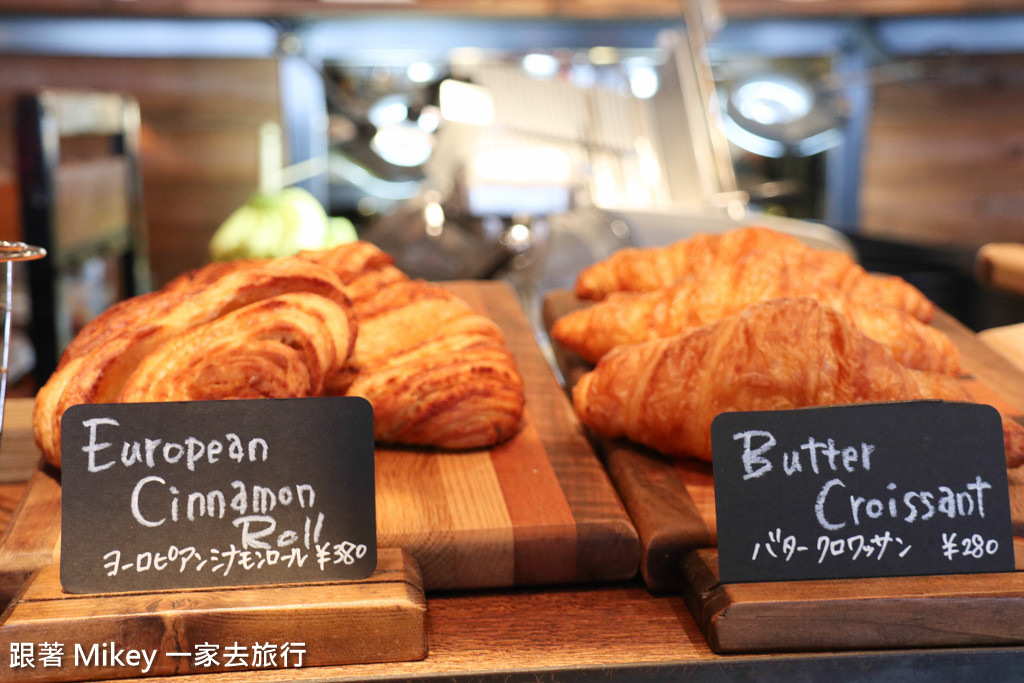 European
Cinnamon
Roll
ヨーロピアンシナモンロール ¥380
Butter
Croissant
バタークロワッサン ¥280
跟著 Mikey 一家去旅行